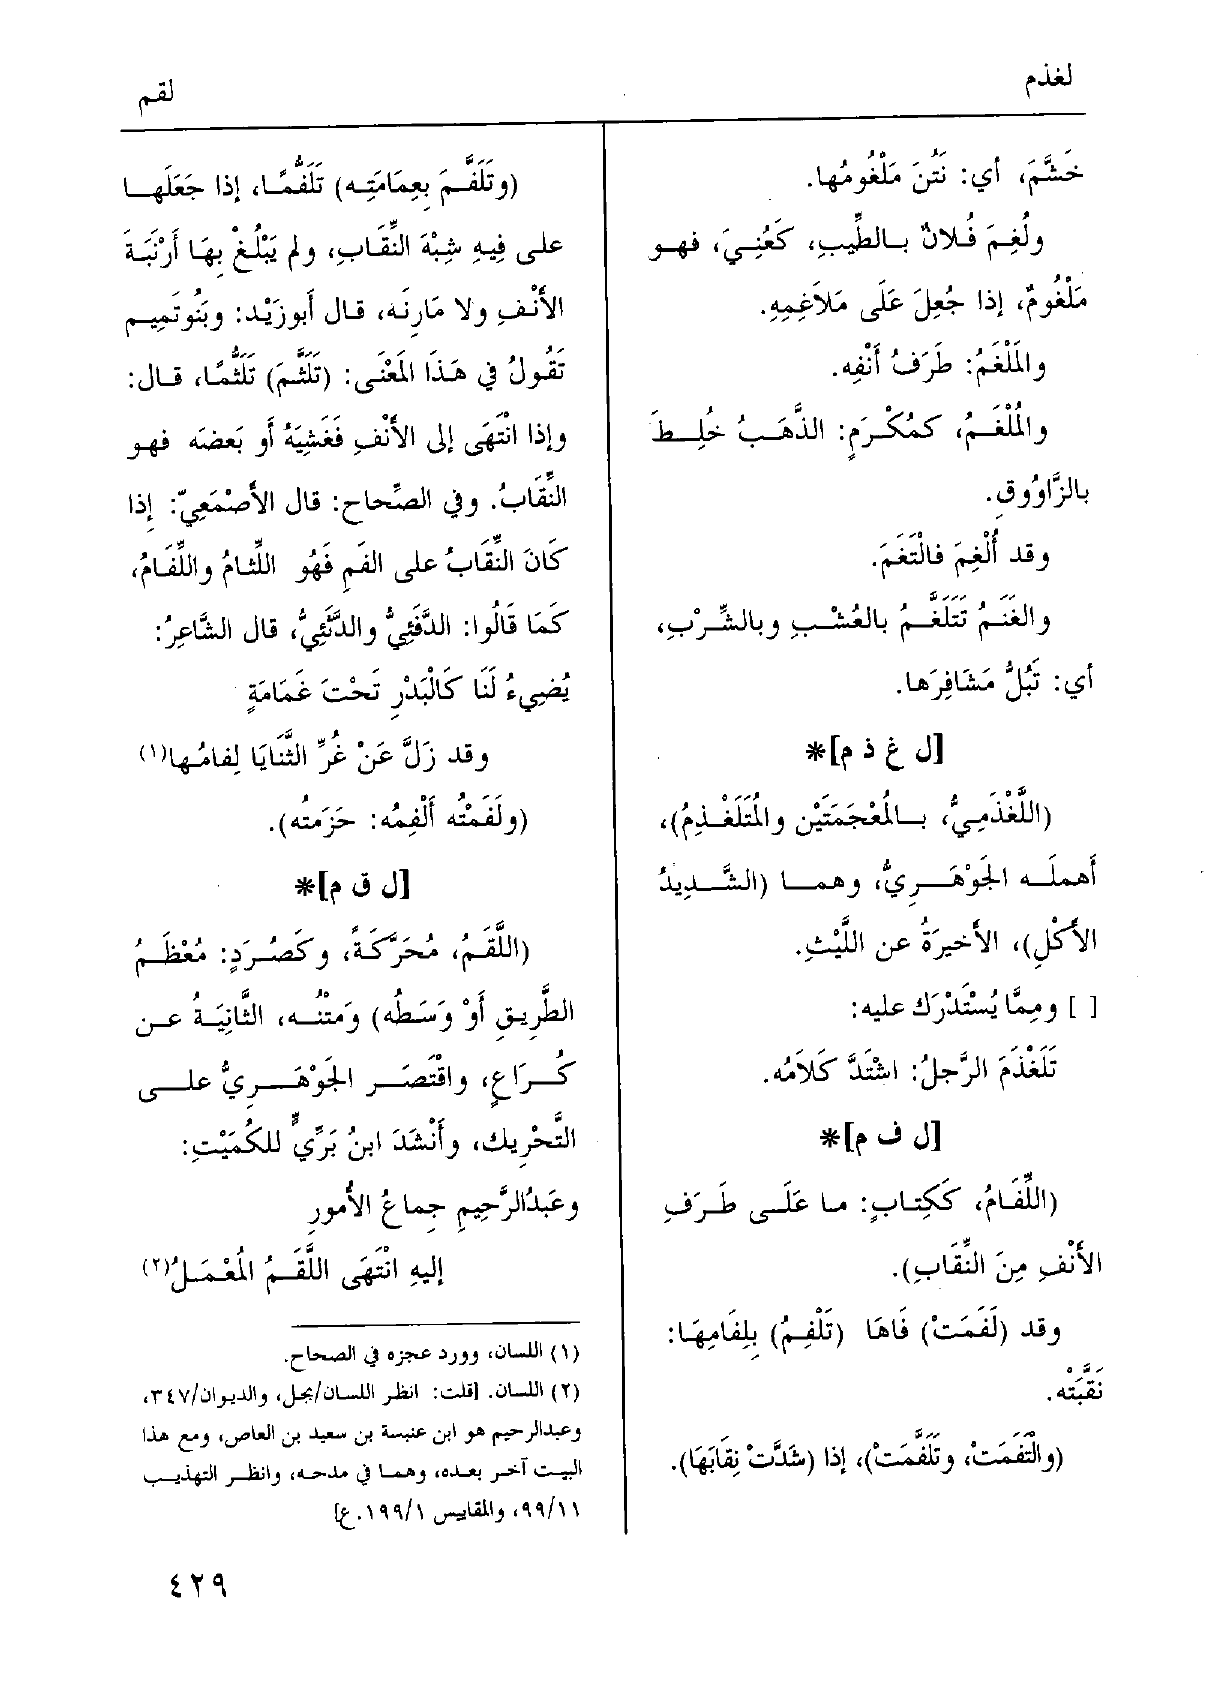 لغذم
لقم
خَشَّمَ، أي: نَتُنَ مَلْغُومُها.
ولُغِمَ فُلانٌ بالطِّيبِ، كَعُنِيَ، فهو
مَلْغُومٌ، إذا جُعِلَ عَلَى مَلاَغِمِهِ.
والمَلْغَمُ: طَرَفُ أَنْفِه.
والمُلْغَمُ، كمُكْرَمٍ: الذَّهَبُ خُلِطَ
بالزَّاوُوقِ.
وقد أُلْغِمَ فالْتَغَمَ.
والغَنَمُ تَتَلَغَّمُ بالعُشْبِ وبالشِّرْبِ،
أي: تَبُلُّ مَشَافِرَها.
[ل غ ذ م]*
(اللَّغْذَمِيُّ، بالمُعْجَمَتَيْنِ والمُتَلَغْذِمُ)،
أهملَه الجَوْهَرِيُّ، وهما (الشَّدِيدُ
الأَكْلِ)، الأَخيرَةُ عن اللَّيْثِ.
[ ] ومِمَّا يُسْتَدْرَك عليه:
تَلَغْذَمَ الرَّجلُ: اشْتَدَّ كَلاَمُه.
[ل ف م]*
(اللِّفَامُ، ككِتَابٍ: ما عَلَى طَرَفِ
الأَنْفِ مِنَ النِّقَابِ).
وقد (لَفَمَتْ) فَاهَا (تَلْفِمُ) بِلِفَامِهَا:
نَقَبَتْه.
(والْتَفَمَتْ، وتَلَفَّمَتْ)، إذا (شَدَّتْ نِقَابَهَا).
(وتَلَفَّمَ بِعِمَامَتِه) تَلَفُّمًا، إذا جَعَلَها
على فِيهِ شِبْهَ النِّقَابِ، ولم يَبْلُغْ بِهَا أَرْنَبَةَ
الأَنْفِ ولا مَارِنَه، قال أبوزَيْد: وبَنُوتَمِيم
تَقُولُ في هَذَا المَعْنَى: (تَلَثَّمَ) تَلَثُّمًا، قال:
وإذا انْتَهَى إلى الأَنْفِ فَغَشِيَهُ أو بَعضَه فهو
النِّقَابُ. وفي الصِّحاح: قال الأَصْمَعِيّ: إذا
كَانَ النِّقَابُ على الفَمِ فَهُو اللِّثَامُ واللِّفَامُ،
كَمَا قَالُوا: الدَّفَئِيُّ والدَّثَئِيُّ، قال الشَّاعِرُ:
يُضِيءُ لَنَا كَالْبَدْرِ تَحْتَ غَمَامَةٍ
وقد زَلَّ عَنْ غُرِّ الثَّنَايَا لِفامُها(١)
(ولَفَمْتُه أَلْفِمُه: حَزَمتُه).
[ل ق م]*
(اللَّقَمُ، مُحَرَّكَةً، وكَصُرَدٍ: مُعْظَمُ
الطَّرِيقِ أَوْ وَسَطُه) ومَتْنُه، الثَّانِيَةُ عن
كُرَاعٍ، واقْتَصَر الجَوْهَرِيُّ على
التَّحْرِيك، وأَنْشَدَ ابنُ بَرِّيٍّ للكُمَيْتِ:
وعَبدُالرَّحِيمِ جِماعُ الأُمورِ
إليهِ انْتَهَى اللَّقَمُ المُعْمَلُ(٢)
(١) اللسان، وورد عجزه في الصحاح.
(٢) اللسان. [قلت: انظر اللسان/بجل، والديوان/٣٤٧،
وعبدالرحيم هو ابن عنبسة بن سعيد بن العاص، ومع هذا
البيت آخر بعده، وهما في مدحه، وانظر التهذيب
٩٩/١١، والمقاييس ١٩٩/١.ع]
٤٢٩